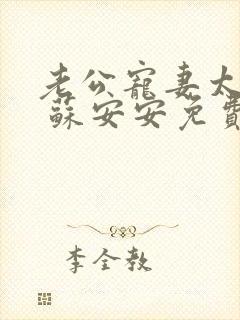 老公寵妻太
蘇安安免費
李全教